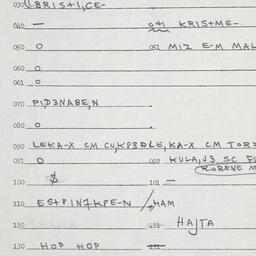 030 BRISTI,CE-
040 — 041 KRISTME-
050 O 051 MIZ E-M MAL
060 O
061 O
070 PID3NABE,N
080 O
090 LEKA-X CM CU,KP3RLE,KA-X CM TOR3
091 O 092 KULA,J3 SC
RORENE M
100 $ 101 —
110 ESTPINZKPE-N / HAM
120 121 HAJTA
130 HOP HOP 131